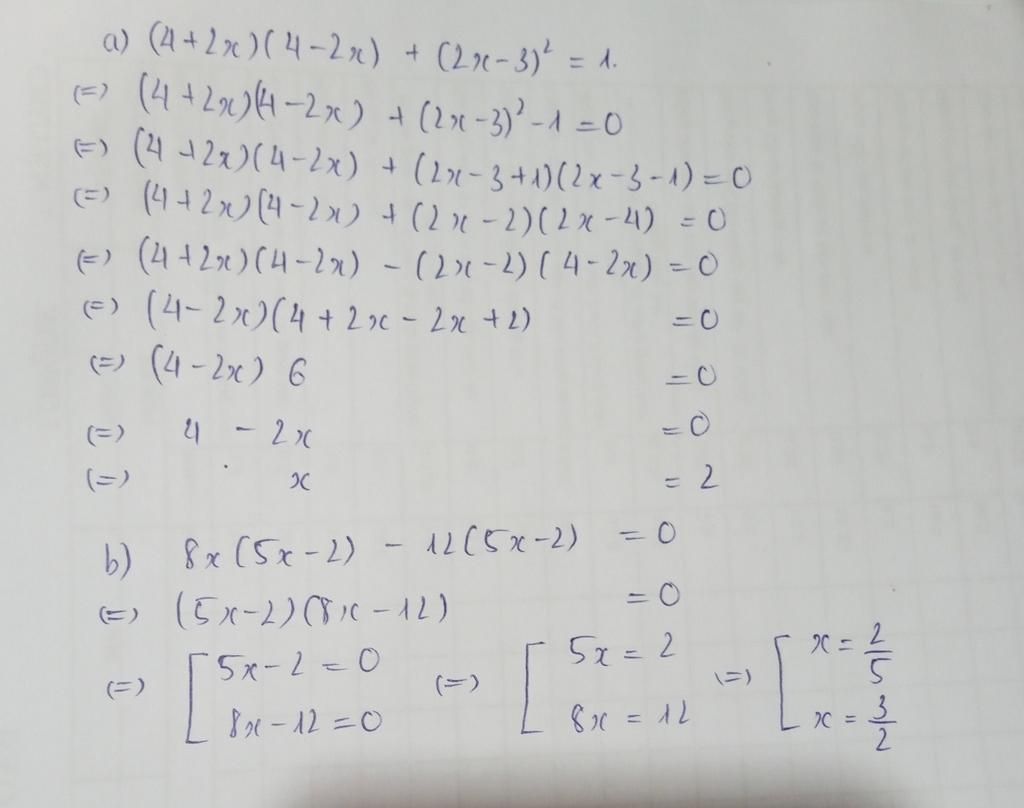 a) (4+2x)(4-2x) + (2x-3)² = 1.
(=) (4+2x)(4-2x) + (2x-3)²-1 =0
(=) (4+2x)(4-2x) + (2x-3+1)(2x-3-1)=0
(=) (4+2x)(4-2x) + (2x-2)(2x-4) =0
(=) (4+2x)(4-2x) - (2x-2)(4-2x) =0
(=) (4-2x)(4+2x-2x+2) =0
(=) (4-2x) 6 =0
(=) 4 - 2x =0
(=) x = 2
b) 8x(5x-2) - 12(5x-2) =0
(=) (5x-2)(8x-12) =0
(=) [ 5x-2 =0 (=) [ 5x = 2 (=) [ x = 2/5
8x-12 =0 8x = 12 x = 3/2